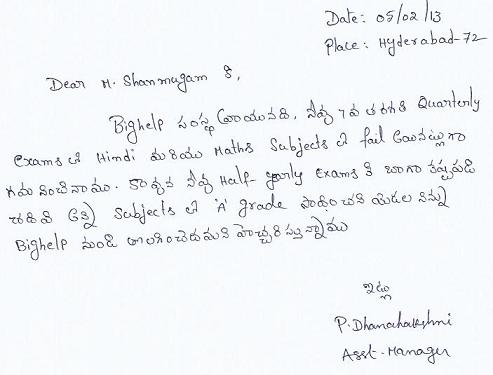 Date: 05/02/13
Place: Hyderabad-72
Dear M. Shanmugam కి,
Bighelp సంస్థ వ్రాయునది, నీవు 7వ తరగతి Quarterly
Exams లో Hindi మరియు Maths Subjects లో fail అయినట్లుగా
గమనించినాము. కావున నీవు Half-yearly Exams కి బాగా కష్టపడి
చదివి అన్ని Subjects లో 'A' grade సాధించని యెడల నిన్ను
Bighelp నుండి తొలగించెదమని హెచ్చరిస్తున్నాము
ఇట్లు
P. Dhanalakshmi
Asst-Manager